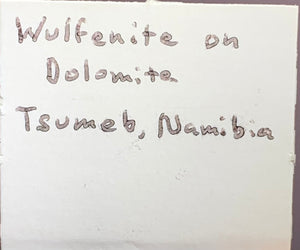 Wulfenite on
Dolomite
Tsumeb, Namibia